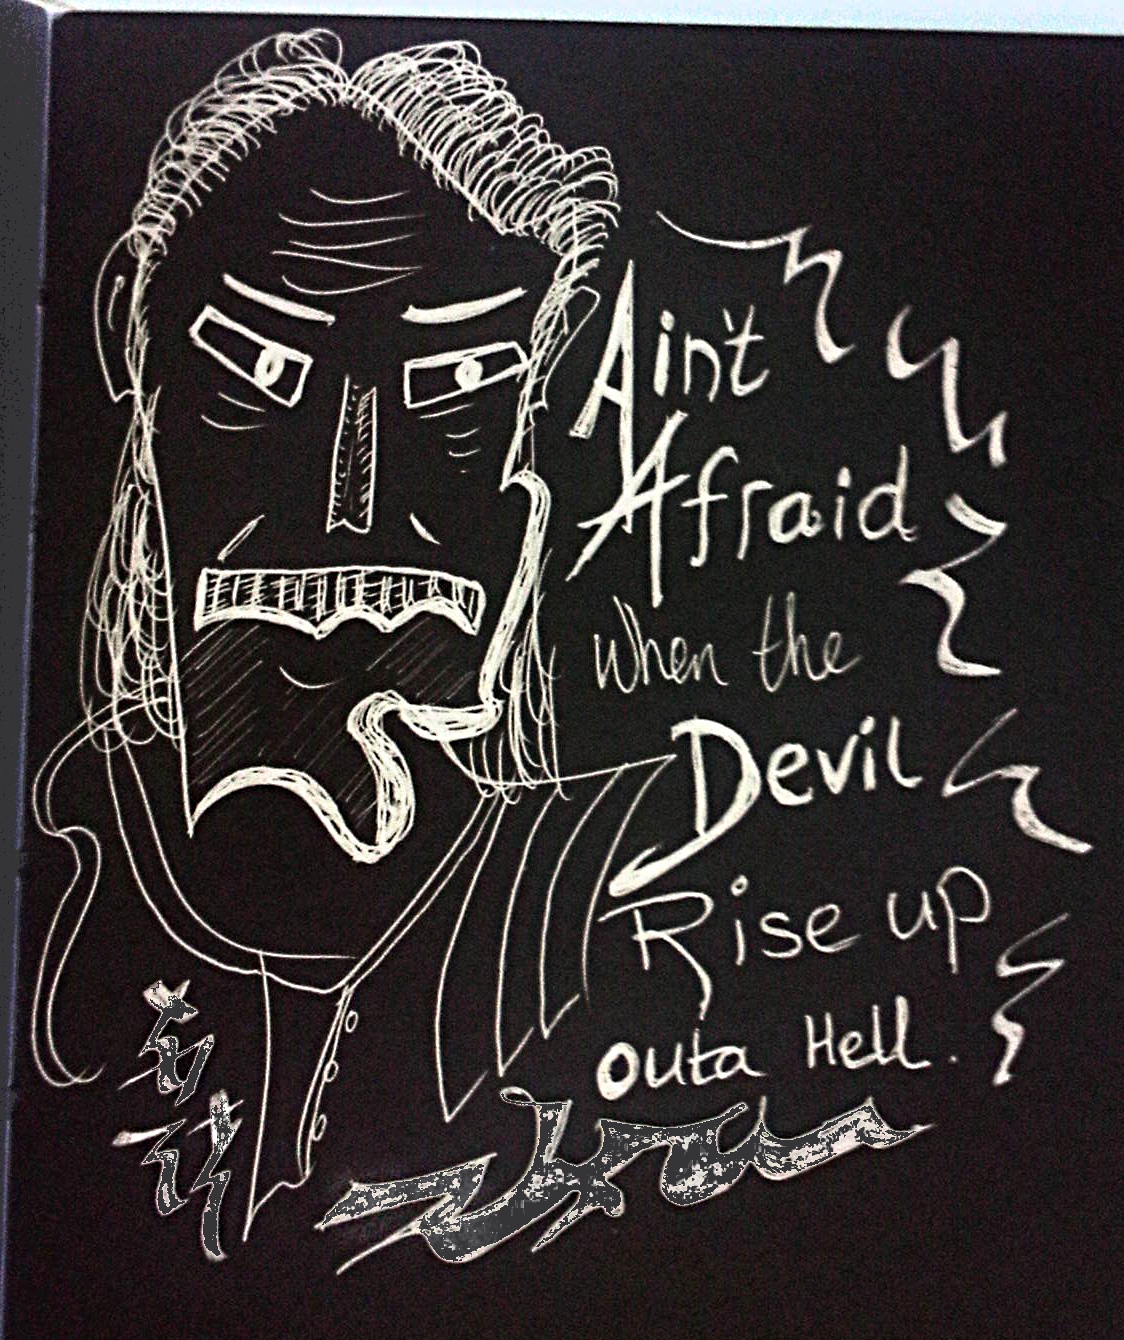 Ain't
Afraid
when the
Devil
Rise up
outa Hell.